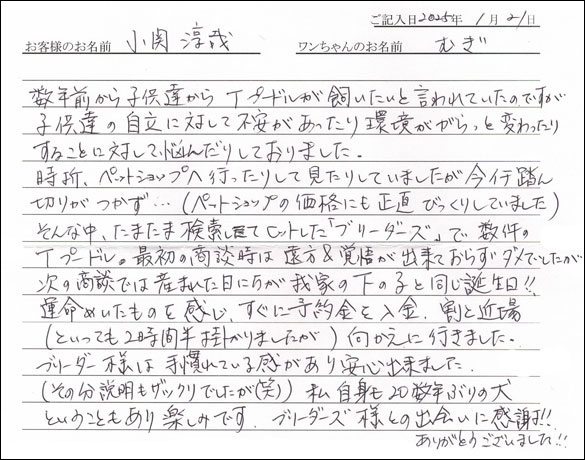 ご記入日2025年 1月21日
お客様のお名前 小関 淳哉 ワンちゃんのお名前 むぎ
数年前から子供達からTプードルが飼いたいと言われていたのですが
子供達の自立に対して不安があったり環境ががらっと変わったり
することに対して悩んだりしておりました。
時折、ペットショップへ行ったりして見たりしていましたが今1行踏ん
切りがつかず…(ペットショップの価格にも正直びっくりしていました)
そんな中、たまたま検索してヒットした「ブリーダーズ」で数件の
Tプードル。最初の商談時は遠方&覚悟が出来ておらずダメでしたが
次の商談では産まれた日にちが我家の下の子と同じ誕生日!!
運命めいたものを感じ、すぐに予約金を入金、割と近場
(といっても2時間半掛かりましたが)向かえに行きました。
ブリーダー様は手慣れている感があり安心出来ました。
(その分説明もザックリでしたが(笑)) 私自身も20数年ぶりの犬
ということもあり楽しみです。ブリーダーズ様との出会いに感謝!!
ありがとうございました!!